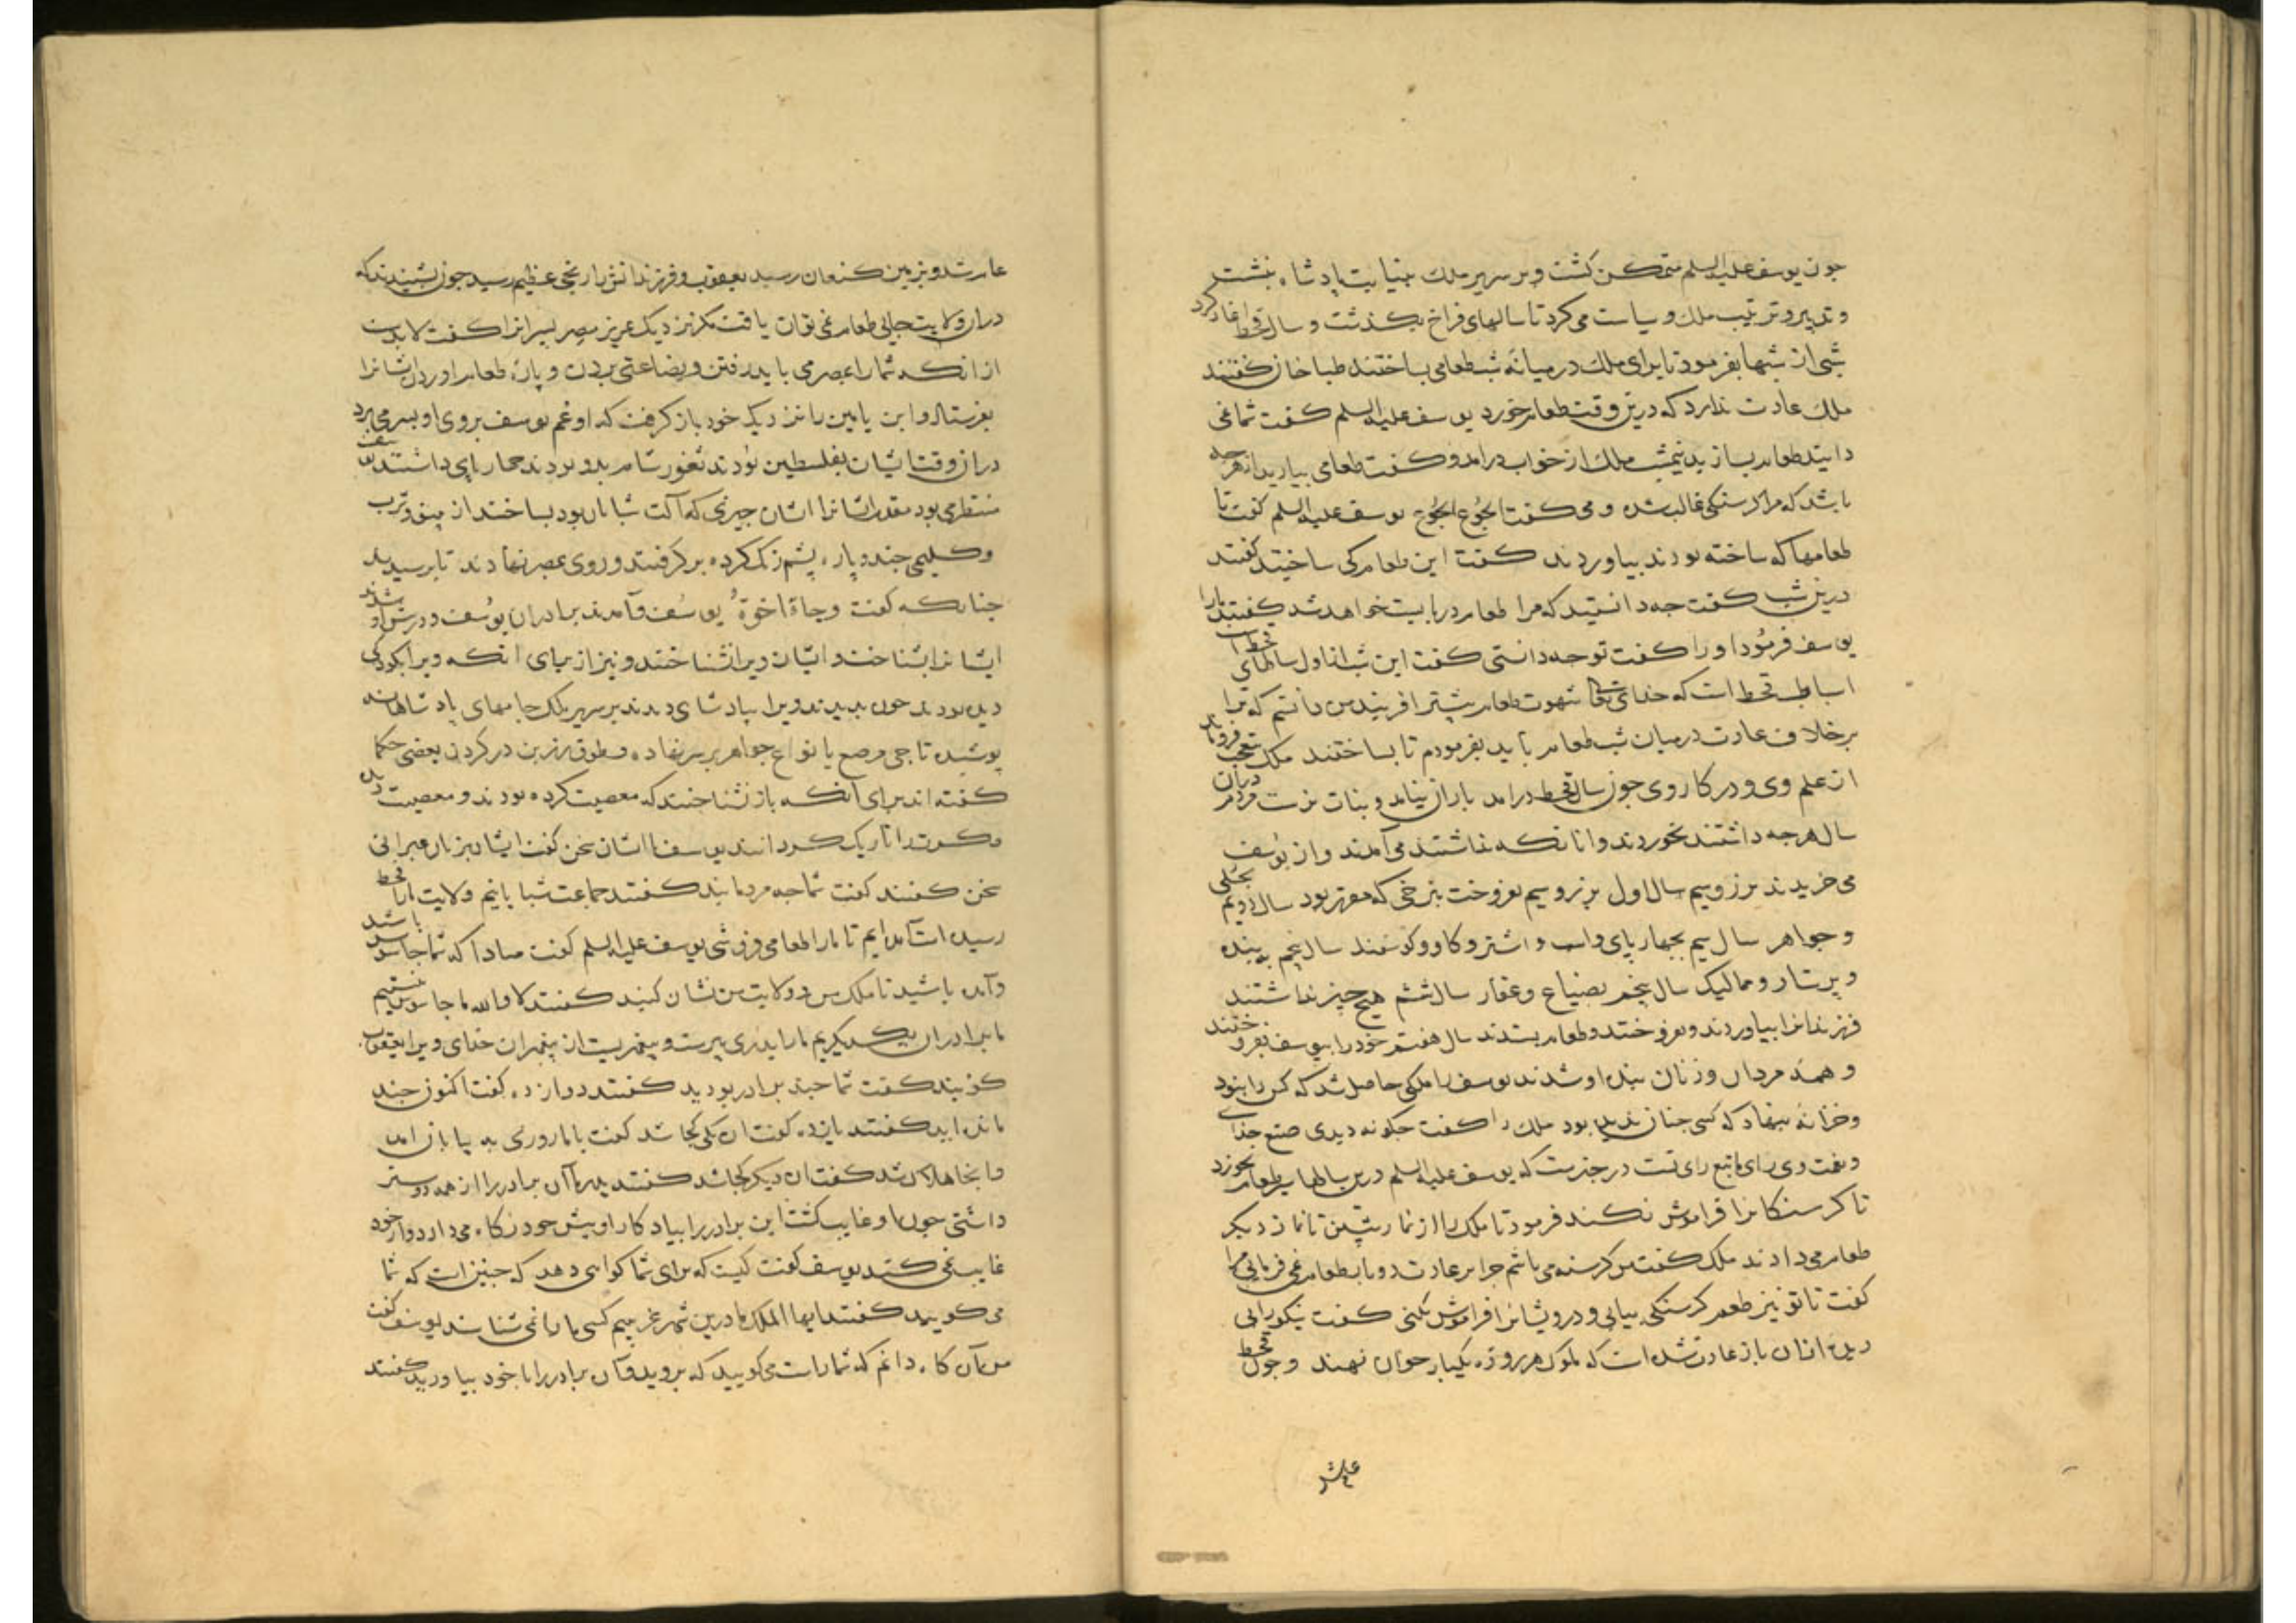 جون یوسف علیه السلم متمکن کشت و بر سریر ملک بنیابت پادشاه بنشست
و تدبیر و ترتیب ملک و سیاست می کرد تا سالهای فراخ بکذشت و سال قحط اغاز کرد
شبی از شبها بفرمود تا برای ملک در میانهٔ شب طعامی بساختند طباخان کفتند
ملک عادت ندارد که درین وقت طعام خورد یوسف علیه السلم کفت شما نمی
دانید طعام بسازید نیمشب ملک از خواب درامد و کفت طعامی بیارید از هر جه
باشد که مرا کرسنکی غالب شده و می کفت الجُوع الجُوع یوسف علیه السلم کفت تا
طعامها که ساخته بودند بیاوردند کفت این طعام کی ساختید کفتند
درین شب کفت جه دانستید که مرا طعام دربایست خواهد شد کفتند مارا
یوسف فرمُود اورا کفت توجه دانستی کفت این شب از اول سالهای
اسباطب قحط است که خدای تعا شهوت طعام بیشتر افریند من دانستم که ترا
برخلاف عادت در میان شب طعام باید بفرمودم تا بساختند ملک متعجب فروماند
از علم وی و در کار وی جون سال قحط درامد باران نیامد و بنات نرست مردم دران
سال هرجه داشتند بخوردند و انانکه نداشتند می آمدند و از یوسف
می خریدند بزر و سیم سال اول بزر و سیم بفروخت بنرخی که مقرر بود سال دویم بحلی
و جواهر سال سیم بجهارپای و اسب و اشتر و کاو و کوسفند سال بنده
و پرستار و ممالیک سال پنجم بضیاع و عقار سال ششم هیچ چیز نداشتند
فرزندانرا بیاوردند و بفروختند و طعام بستدند سال هفتم خودرا بیوسف بفروختند
و همهٔ مردان و زنان بنده او شدند یوسف را ملکی حاصل شد که کس را نبود
و خزانهٔ بنهاد که کسی جنان ندیده بود ملک را کفت جکونه دیدی صنع خدای
و کفت وی رای ما تبع رای تست در خبرست که یوسف علیه السلم درین سالها سیر طعام نخورد
تا کرسنکانرا فراموش نکند فرمود تا ملک را از نماز پیشین تا نماز دیکر
طعام می دادند ملک کفت من کرسنه می باشم جرا بر عادت دو بار طعام نمی فرمایی مرا
کفت تا تو نیز طعم کرسنکی بیابی و درویشانرا فراموش نکنی کفت نیکو رایی
دیدی ازان باز عادت شده است که ملوک هر روزه یکبار خوان نهند و جون قحط
عام شد
عام شد و بزمین کنعان رسید یعقوب و فرزندانش را رنجی عظیم رسید جون بشنیدند که
دران ولایت جایی طعام نمی توان یافت مکر نزدیک عزیز مصر پسرانرا کفت لابدست
از انکه شمارا بمصر می باید رفتن و بضاعتی بردن و پارهٔ طعام اوردن ایشانرا
بفرستاد و ابن یامین را نزدیک خود باز کرفت که او غم یوسف بروی او بسر می برد
دران وقت ایشان بفلسطین بودند ثغور شام بدو بودند جهارپای داشتند
منتظر می بود مقدم ایشانرا ایشان جیزی که آلت شبانان بود بساختند از پینو و ترب
و کلیمی جند و پاره پشم زنک کرده برکرفتند و روی بمصر نهادند تا برسیدند
جنانکه کفت وجاة اخوة یوسف و آمدند برادران یوسف و در پیش او شدند
ایشانرا بشناخت و ایشان ویرا نشناختند و نیز از برای انکه ویرا بکودکی
دیده بودند جون بدیدند ویرا بپادشاهی دیدند بر سریر ملک جامهای پادشاهانه
پوشیده تاجی مرصع بانواع جواهر بر سر نهاده و طوق زرین در کردن بعضی حکما
کفته اند برای آنکه باز نشناختند که معصیت کرده بودند و معصیت دل
و صورت را تاریک کرداند یوسف با ایشان سخن کفت ایشان بزبان عبرانی
سخن کفتند کفت شما جه مردمانید کفتند جماعت شبانانیم ولایت مارا قحط
رسیده است آمده ایم تا مارا طعامی فروشی یوسف علیه السلم کفت مبادا که شما جاسوس باشید
و آمده باشید تا ملک من و ولایت من نشان کنید کفتند لا والله ما جاسوس نیستیم
ما برادران یکدیکریم مارا پدری پیرست و پیغمبریست از پیغمبران خدای ویرا یعقوب
کویند کفت شما جند برادر بودید کفتند دوازده کفت اکنون جند
مانده اید کفتند یازده کفت ان یکی کجا شد کفت باما روزی به بیابان امد
و انجا هلاک شد کفت ان دیکر کجا شد کفتند پدر ما آن برادر را از همه دوستر
داشتی جون او غایب کشت این برادر را بیادکار او پیش خود نکاه می دارد و از خود
غایب نمی کند یوسف کفت کیست که برای شما کواهی دهد که جنین است که شما
می کویید کفتند ایها الملک ما درین شهر غریبیم کسی مارا نمی شناسد یوسف کفت
من آن کاه دانم که شما راست می کویید که بروید و آن برادر را با خود بیاورید کفتند